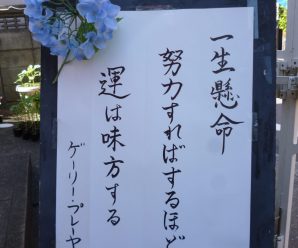 一生懸命
努力すればするほど
運は味方する
ゲーリー・プレーヤ